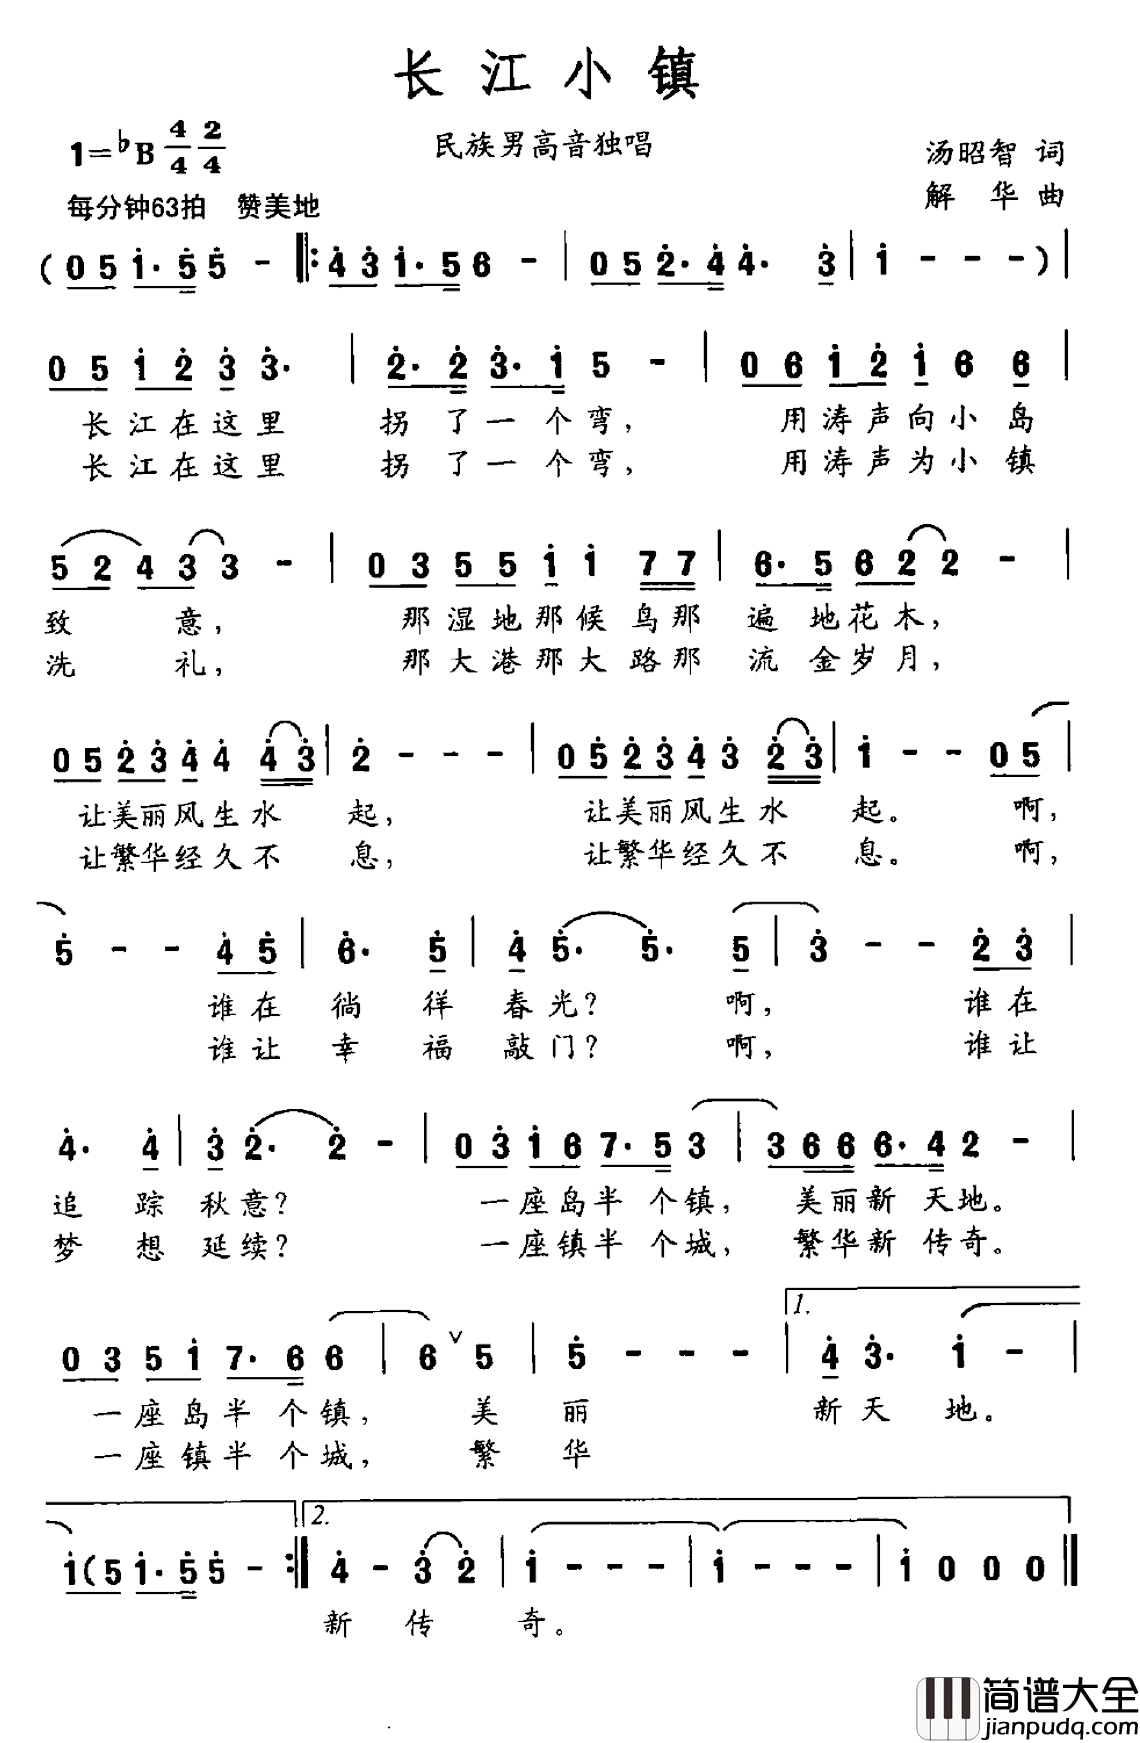 长江小镇
1=♭B 4/4 2/4 民族男高音独唱 汤昭智 词
每分钟63拍 赞美地 解 华 曲
(0 5 1̇· 5̇ 5̇ - ‖: 4̇ 3̇ 1̇· 5 6 - | 0 5 2̇· 4̇ 4̇· 3̇ | 1̇ - - - ) |
0 5 1̇ 2̇ 3̇ 3̇· | 2̇· 2̇ 3̇· 1̇ 5 - | 0 6 1̇ 2̇ 1̇ 6 6 |
长江在这里 拐了一个弯， 用涛声向小岛
长江在这里 拐了一个弯， 用涛声为小镇
5 2 4 3 3 - | 0 3 5 5 1̇ 1̇ 7 7 | 6· 5 6 2 2 - |
致 意， 那湿地那候鸟那 遍地花木，
洗 礼， 那大港那大路那 流金岁月，
0 5 2̇ 3̇ 4̇ 4̇ 4̇ 3̇ | 2̇ - - - | 0 5̇ 2̇ 3̇ 4̇ 3̇ 2̇ 3̇ | 1̇ - - 0 5̇ |
让美丽风生水 起， 让美丽风生水 起。 啊，
让繁华经久不 息， 让繁华经久不 息。 啊，
5̇ - - 4̇ 5̇ | 6̇· 5̇ | 4̇ 5̇· 5̇· 5̇ | 3̇ - - 2̇ 3̇ |
谁在 徜 徉 春光？ 啊， 谁在
谁让 幸 福 敲门？ 啊， 谁让
4̇· 4̇ | 3̇ 2̇· 2̇ - | 0 3̇ 1̇ 6 7· 5 3 | 3 6 6 6· 4 2 - |
追 踪 秋意？ 一座岛半 个镇， 美丽新 天地。
梦 想 延续？ 一座镇半 个城， 繁华新 传奇。
1.
0 3 5 1̇ 7· 6 6 | 6 ∨ 5 | 5̇ - - - | 4̇ 3̇· 1̇ - |
一座岛半 个镇， 美 丽 新天 地。
一座镇半 个城， 繁 华
2.
1̇ (5 1̇· 5̇ 5̇ - :‖ 4̇ - 3̇ 2̇ | 1̇ - - - | 1̇ - - - | 1̇ 0 0 0 ‖
新 传 奇。
简谱大全
jianpudq.com